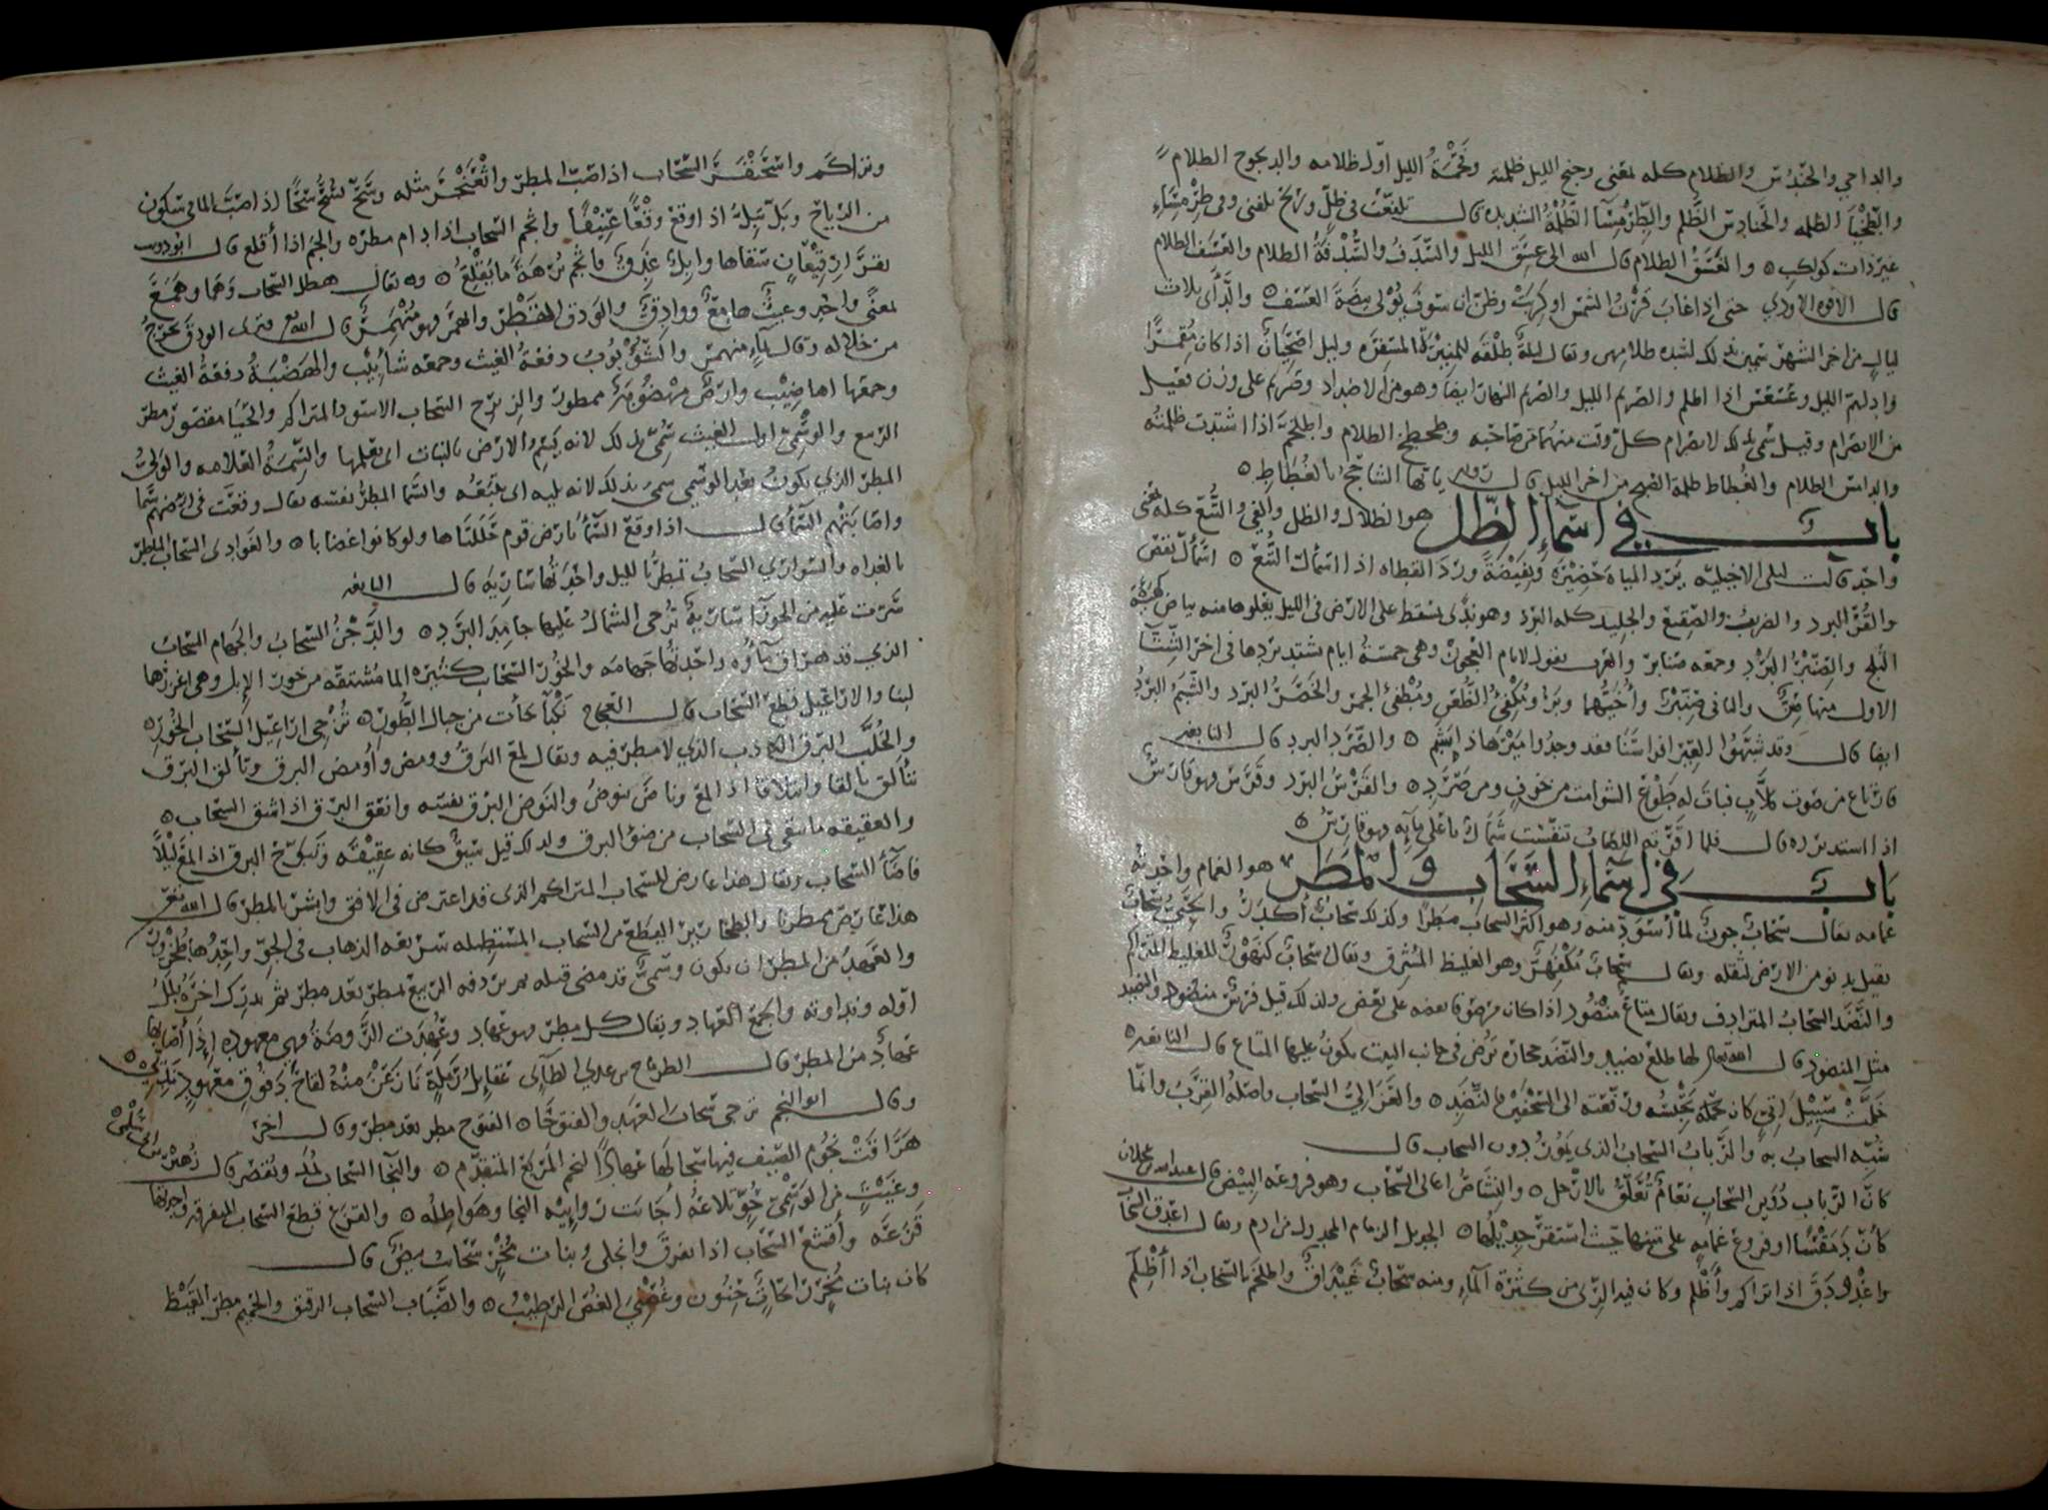 والداجي والحندس والظلام كله بمعنى وجنح الليل ظلمته وفحمة الليل اوّل ظلامه والديجوج الظلام
والطخيآ الظلمه والحنادس الظلم والطرمسآ الظلمة الشديده قال تلفعت في ظل وريح تلفني وفي طرمساء
غير ذات كواكب ٥ والغسق الظلام قال الله الى غسق الليل والسدف والسدفة الظلام والغسف الظلام
قال الافوه الاودي حتى اذا غاب قرن الشمس او كربت وظن ان سوف يولي بيضه الغسف ٥ والدآدى ثلاث
ليالٍ من اخر الشهر سمين بذلك لشده ظلامهن ويقال ليلة طلقه للمنيرة المسفره وليل اضحيان اذا كان مقمرا
وادلهم الليل وعسعس اذا اظلم والصريم الليل والصريم النهار ايضا وهو من الاضداد وصريم على وزن فعيل
من الانصرام وقيل سمي بذلك لانصرام كل وقت منهما من صاحبه وطخطخ الظلام واطلخم اذا اشتدت ظلمته
والدامس الظلام والغطاط ظلمة الصبح من اخر الليل قال يا ايها الشاحج بالغطاط ٥
باب في اسمآء الظل هو الظلال والظل والفي والتبع كله بمعنى
واحد قالت ليلى الاخيليه يرد المياه حضيرة ونفيضة ورد القطاه اذا اسمأل التبع ٥ اسمأل نقص
والقر البرد والضريب والصقيع والجليد كله البرد وهو ندى يسقط على الارض في الليل يعلوها منه بياض كهيئة
الثلج والصنبر البرد وجمعه صنابر والعرب تقول لايام العجوز وهي خمسة ايام يشتد بردها في اخر الشتآ
الاول منها صن والثاني صنبر وأخيهما وبر ومكفئ الظعن ومطفئ الجمر والخصر البرد والشبم البرد
ايضا قال وقد شبهوا العير افراسنا فقد وجدوا ميرها ذا بشم ٥ والصرد البرد قال النابغه
فارتاع من صوت كلاب فبات له طوع الشوامت من خوف ومن صرد ٥ والقرس البرد وقرس وهو قارس
اذا استد برده قال فلما
باب في اسماء السحاب والمطر هو الغمام واحدته
غمامه يقال سحاب جون لما اسود منه وهو اكثر السحاب مطرا وكذلك سحاب أكدر والحبي سحاب
ثقيل يدنو من الارض لثقله ويقال سحاب مكفهر وهو الغليظ المشرق ويقال سحاب كنهور للغليظ المتراكم
والنضد السحاب المترادف ويقال متاع منضود اذا كان مرصوفا بعضه على بعض ولذلك قيل فرش منضود والنضيد
مثل المنضود قال الله تعالى لها طلع نضيد والنضد حجارة ترض في جانب البيت يكون عليها المتاع قال النابغه
خلت سبيل اتي كان يحبسه ورفعته الى السجفين فالنضد ٥
شبه السحاب به والرباب السحاب الذي يكون دون السحاب قال
كان الرباب دوين السحاب نعام تعلق بالارجل ٥ والنشاص اعالي السحاب وهو فروعه البيض قال عبد الله بن عجلان
كأن دمقسا او فروع غمامه على متنها حيث استقر جديلها ٥ الجديل الزمام المجدول من ادم ويقال اغدق السحاب
واغدودق اذا تراكم وأظلم وكان فيه الري من كثرة الماء ومنه سحاب غيداق واطلخم السحاب اذا أظلم
وتراكم واسحنفر السحاب اذا صب المطر واثعنجر مثله وسح يسح سحا اذا صب الما في سكون
من الرياح وبل يبل اذا وقع وقعا عنيفا واثجم السحاب اذا دام مطره وانجم اذا أقلع قال ابو ذويب
بقرار قيعان سقاها وابل غدق فاثجم برهة ما يقلع ٥ ويقال هطل السحاب وهما وهمع
بمعنى واحد وغيث هامع ووادق والودق القطر وانهمر فهو منهمر قال الله تع فترى الودق يخرج
من خلاله وقال بمآء منهمر والشؤبوب دفعة الغيث وجمعه شآبيب والهضبة دفعة الغيث
وجمعها اهاضيب وارض مهضوبة ممطورة والزبرج السحاب الاسود المتراكم والحيا مقصور مطر
الربيع والوسمي اول الغيث سمي بذلك لانه يسم الارض بالنبات اي يعلمها والسمة العلامه والولي
المطر الذي يكون بعد الوسمي سمي بذلك لانه يليه اي يتبعه والسما المطر نفسه يقال وقعت في ارضهم سما
واصابتهم السمآ قال اذا وقع السمآ بارض قوم حللناها ولو كانوا غضابا ٥ والغوادى السحاب الماطر
بالغداه والسواري السحاب تمطر بالليل واحدتها ساريه قال النابغه
سرت عليه من الجوزآ سارية تزجى الشمال عليها جامد البرد ٥ والدجن السحاب والجهام السحاب
الذي قد هراق مآؤه واحدتها جهامه والخور السحاب كثيره الما مشتقه من خور الابل وهي اغزرها
لبنا والاراعيل قطع السحاب قال العجاج تزجى اراعيل السحاب الخور ٥
والخلب البرق الكاذب الذي لا مطر فيه ويقال لمع البرق وومض وأومض البرق وتألق البرق
يتألق تالقا وائتلاقا اذا لمع وناض ينوض والنوض البرق نفسه وانعق البرق اذا شق السحاب ٥
والعقيقه ما يبقى في السحاب من ضوء البرق ولذلك قيل سيف كانه عقيقه وتبوج البرق اذا لمع ليلا
فاضآء السحاب ويقال هذا عارض للسحاب المتراكم الذي قد اعترض في الافق وابشر بالمطر قال الله تع
هذا عارض ممطرنا والطخارير القطع من السحاب المستطيله سريعه الذهاب في الجو واحدها طخرور
والعهد من المطر ان يكون وسمي قد مضى قبله ثم يردفه الربيع بمطر بعد مطر ثم يدرك اخره بلل
اوّله ونداوته والجمع العهاد ويقال كل مطر فهو عهاد وعهدت الروضة فهي معهوده اذا أصابها
عهاد من المطر قال الطرماح بن عدي الطآئى عقايل رملة نازعن منه لفاح دفوف معهود
وقال ابو النجم ترعى سحاب العهد والفتوحا ٥ الفتوح مطر بعد مطر وقال اخر
هراقت نجوم الصيف فيها سجالها عهادا لنجم المربع المتقدم ٥ والنجا السحاب يمد ويقصر قال زهير بن ابي سلمى
وغيث من الوسمي حو تلاعه اجابت روابيه النجا وهواطله ٥ والقزع قطع السحاب المتفرقه واحدتها
قزعه وأقشع السحاب اذا تفرق وانجلى وبنات بخر سحاب بيض قال
كان بنات والضباب السحاب الرقيق والحميم مطر القيظ